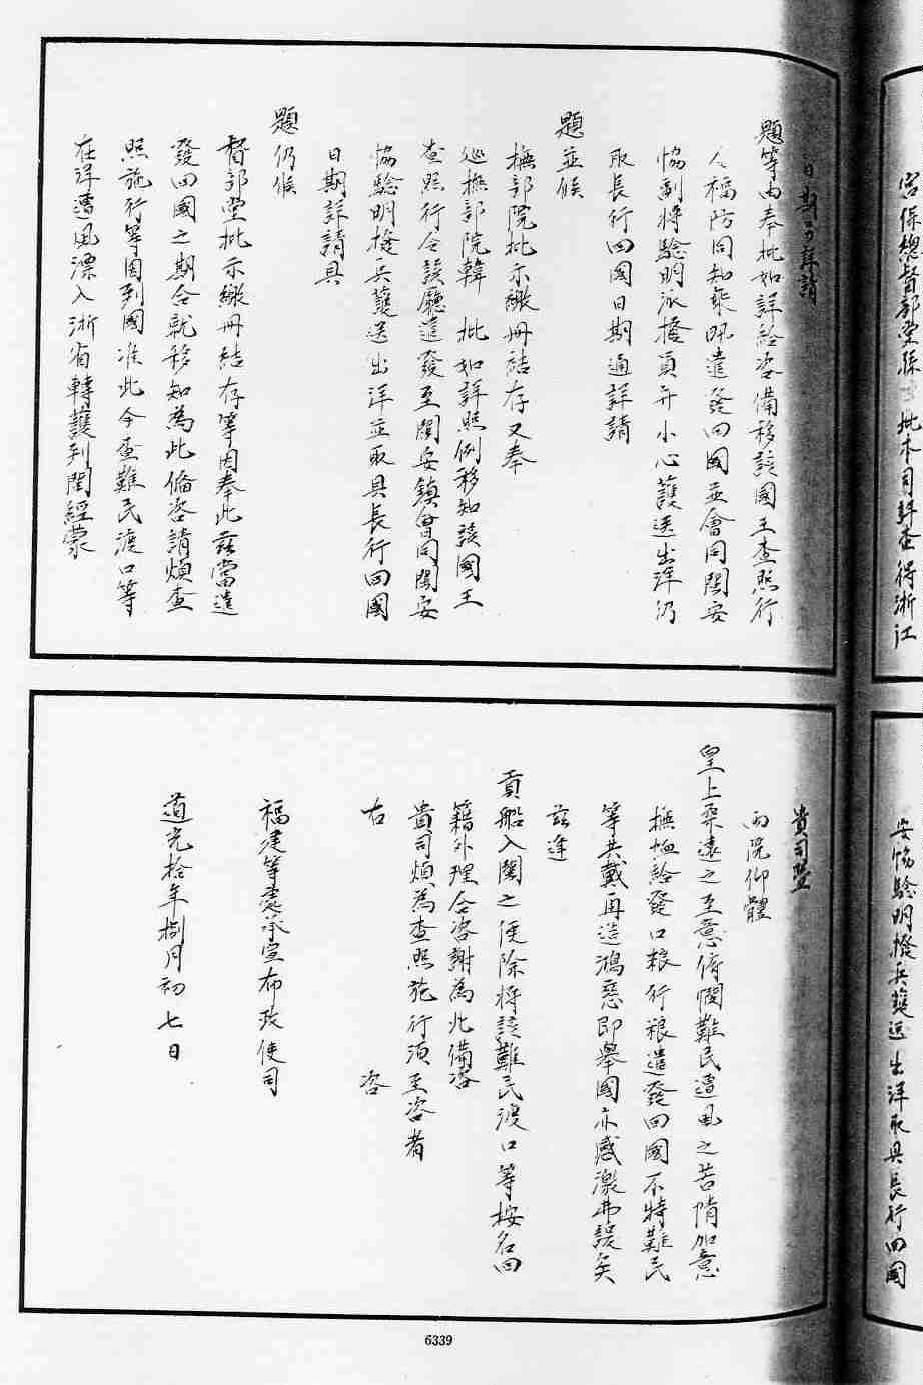 宮保總督部堂孫 批本司詳查得浙江
日期另詳請
題等由奉批如詳給咨備移該國王查照行
令福防同知乘風遣發回國並會同閩安
協副將驗明派撥員弁小心護送出洋仍
取長行回國日期通詳請
題並候
撫部院批示繳冊結存又奉
巡撫部院韓 批如詳照例移知該國王
查照行令該廳遣發至閩安鎮會同閩安
協驗明撥兵護送出洋並取具長行回國
日期詳請具
題仍候
督部堂批示繳冊結存等因奉此茲當遣
發回國之期合就移知為此備咨請煩查
照施行等因到國准此今查難民渡口等
在洋遭風漂入浙省轉護到閩經蒙
安協驗明撥兵護送出洋取具長行回國
貴司暨
兩院仰體
皇上柔遠之至意俯憫難民遭風之苦隋加意
撫恤給發口粮行粮遣發回國不特難民
等共戴再造鴻慈即舉國亦感激弗諼矣
茲逢
貢船入閩之便除將該難民渡口等按名回
籍外理合咨謝為此備咨
貴司煩為查照施行須至咨者
右 咨
福建等處承宣布政使司
道光拾年捌月初七日
6339